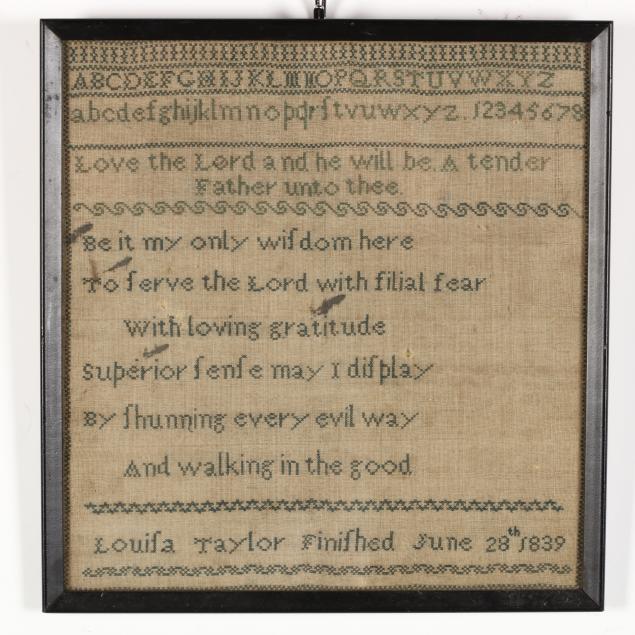 ABCDEFGHIJKLMNOPQRSTUVWXYZ
abcdefghijklmnopqrſtvuwxyz. 12345678
Love the Lord and he will be. A tender
Father unto thee.
Be it my only wiſdom here
To ſerve the Lord with filial fear
With loving gratitude
Superior ſenſe may I diſplay
By ſhunning every evil way
And walking in the good
Louiſa Taylor Finiſhed June 28th 1839